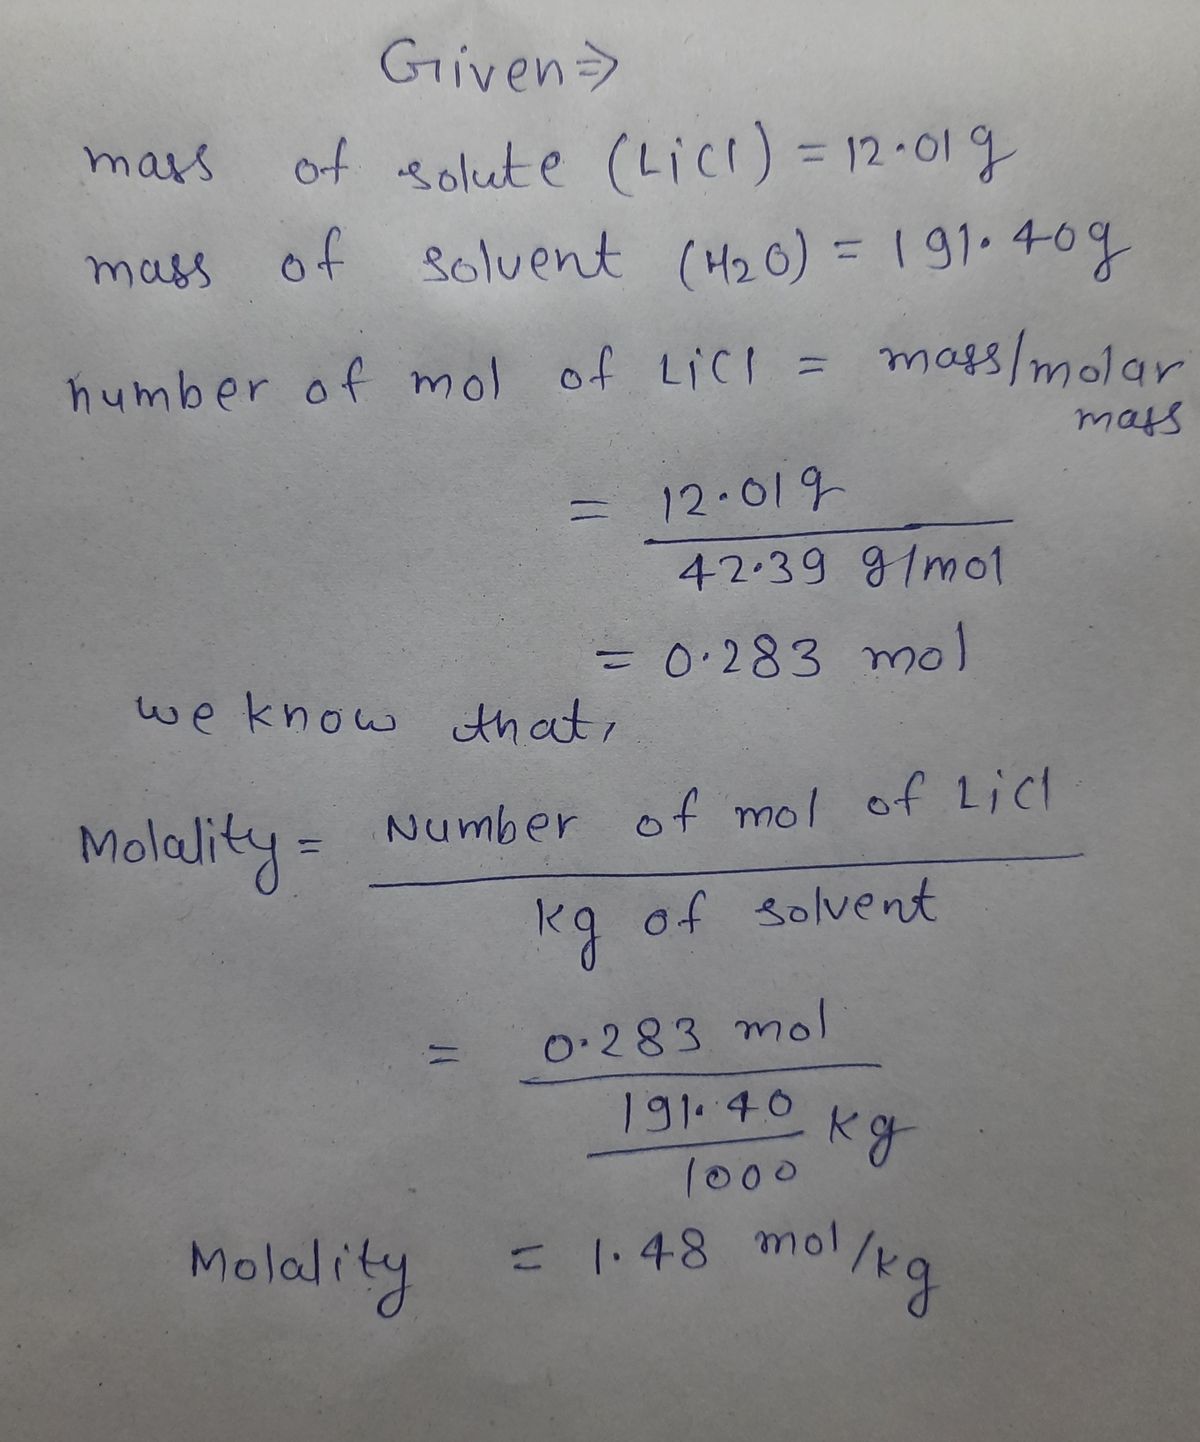 Given⇒
mass of solute (LiCl) = 12.01g
mass of solvent (H2O) = 191.40g
number of mol of LiCl = mass/molar
mass
= 12.01g
42.39 g/mol
= 0.283 mol
we know that,
Molality = Number of mol of LiCl
kg of solvent
= 0.283 mol
191.40 kg
1000
Molality = 1.48 mol/kg